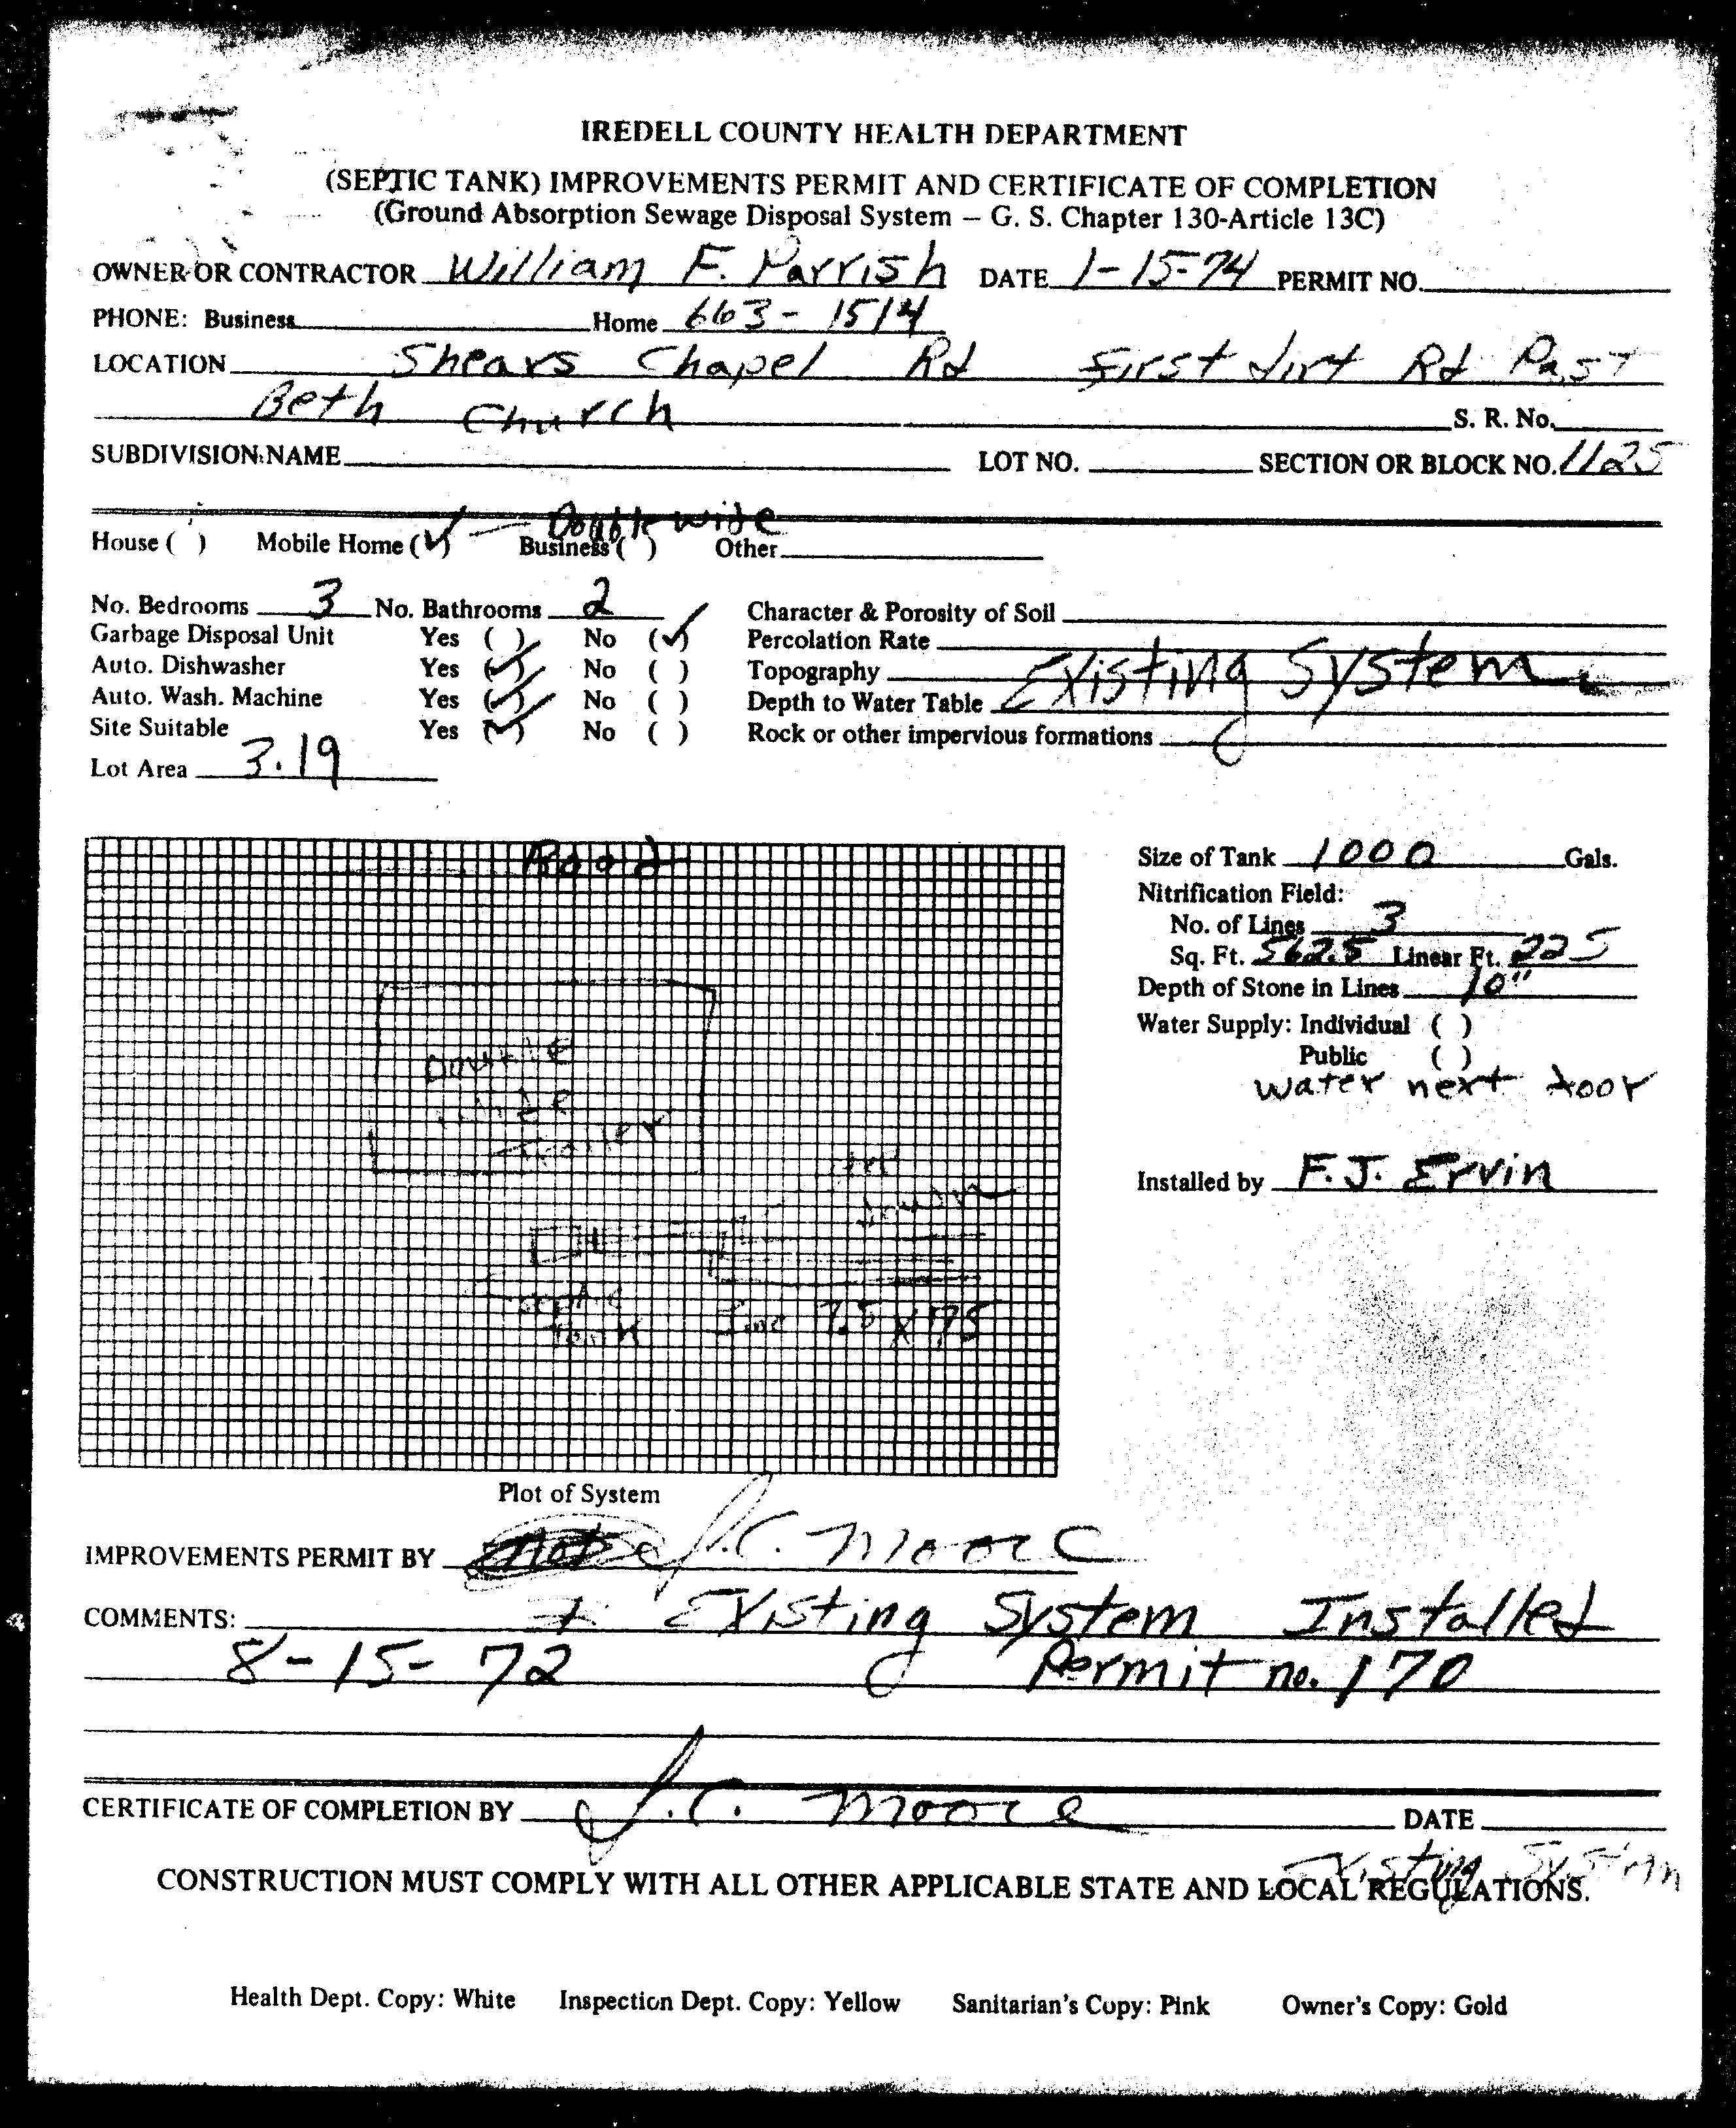 IREDELL COUNTY HEALTH DEPARTMENT
(SEPTIC TANK) IMPROVEMENTS PERMIT AND CERTIFICATE OF COMPLETION
(Ground Absorption Sewage Disposal System — G. S. Chapter 130-Article 13C)
OWNER OR CONTRACTOR William F. Parrish DATE 1-15-74 PERMIT NO.
PHONE: Business Home 663-1514
LOCATION Shears Chapel Rd First dirt Rd Past
Beth Church S. R. No.
SUBDIVISION NAME LOT NO. SECTION OR BLOCK NO. 1125
House ( ) Mobile Home (✓) — Double wide Business ( ) Other
No. Bedrooms 3 No. Bathrooms 2 Character & Porosity of Soil
Garbage Disposal Unit Yes ( ) No (✓) Percolation Rate
Auto. Dishwasher Yes (✓) No ( ) Topography Existing System
Auto. Wash. Machine Yes (✓) No ( ) Depth to Water Table
Site Suitable Yes (✓) No ( ) Rock or other impervious formations
Lot Area 3.19
Road
Double
wide
Trailer
Septic
Tank
Line
Size of Tank 1000 Gals.
Nitrification Field:
No. of Lines 3
Sq. Ft. 562.5 Linear Ft. 225
Depth of Stone in Lines 10"
Water Supply: Individual ( )
Public ( )
water next door
Installed by F.J. Ervin
Plot of System
IMPROVEMENTS PERMIT BY J.C. Moore
COMMENTS: Existing System Installed
8-15-72 Permit no. 170
CERTIFICATE OF COMPLETION BY J.C. Moore DATE
Existing System
CONSTRUCTION MUST COMPLY WITH ALL OTHER APPLICABLE STATE AND LOCAL REGULATIONS.
Health Dept. Copy: White Inspection Dept. Copy: Yellow Sanitarian's Copy: Pink Owner's Copy: Gold